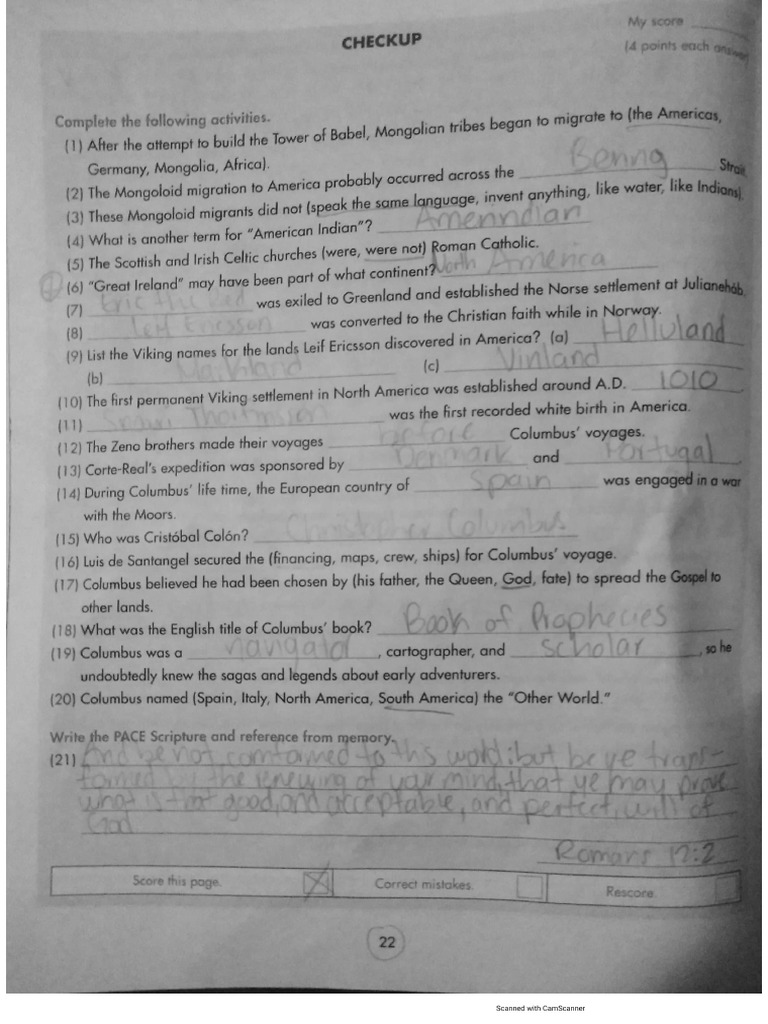 My score
CHECKUP
(4 points each answer)
Complete the following activities.
(1) After the attempt to build the Tower of Babel, Mongolian tribes began to migrate to (the Americas,
Germany, Mongolia, Africa).
(2) The Mongoloid migration to America probably occurred across the Bering Strait.
(3) These Mongoloid migrants did not (speak the same language, invent anything, like water, like Indians).
(4) What is another term for "American Indian"? Amerindian
(5) The Scottish and Irish Celtic churches (were, were not) Roman Catholic.
(6) "Great Ireland" may have been part of what continent? North America
(7) Eric the Red was exiled to Greenland and established the Norse settlement at Julianeháb.
(8) Leif Ericsson was converted to the Christian faith while in Norway.
(9) List the Viking names for the lands Leif Ericsson discovered in America? (a) Helluland
(b) Markland (c) Vinland
(10) The first permanent Viking settlement in North America was established around A.D. 1010.
(11) was the first recorded white birth in America.
(12) The Zeno brothers made their voyages before Columbus' voyages.
(13) Corte-Real's expedition was sponsored by Denmark and Portugal.
(14) During Columbus' life time, the European country of Spain was engaged in a war
with the Moors.
(15) Who was Cristóbal Colón? Christopher Columbus
(16) Luis de Santangel secured the (financing, maps, crew, ships) for Columbus' voyage.
(17) Columbus believed he had been chosen by (his father, the Queen, God, fate) to spread the Gospel to
other lands.
(18) What was the English title of Columbus' book? Book of Prophecies
(19) Columbus was a navigator, cartographer, and scholar, so he
undoubtedly knew the sagas and legends about early adventurers.
(20) Columbus named (Spain, Italy, North America, South America) the "Other World."
Write the PACE Scripture and reference from memory.
(21) And be not comformed to this world: but be ye trans-
formed by the renewing of your mind, that ye may prove
what is that good, and acceptable, and perfect, will of
God
Romans 12:2
Score this page. Correct mistakes. Rescore.
22
Scanned with CamScanner